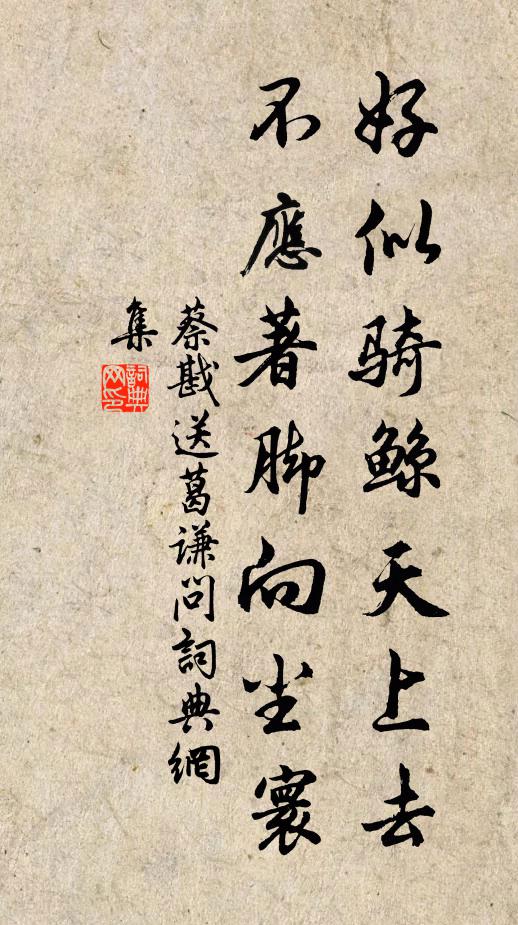 好似骑鲸天上去
不應著脚向尘寰
蔡戡送葛谦問詞典網
集
詞典
网印